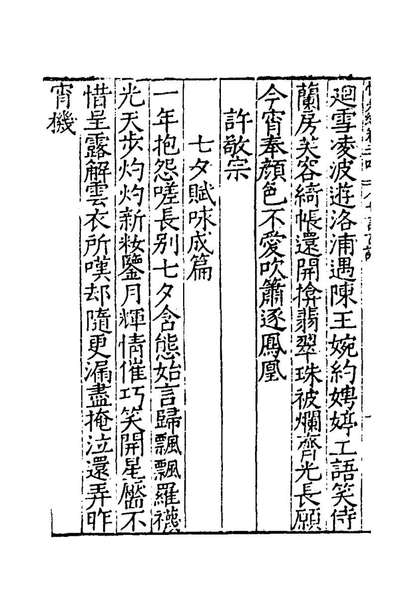 廻雪凌波遊洛浦遇陳王婉約娉婷工語笑侍
蘭房芙容綺帳還開揜翡翠珠被爛齊光長願
今宵奉顔色不愛吹簫逐鳳凰
許敬宗
七夕賦咏成篇
一年抱怨嗟長别七夕含態始言歸飄飄羅襪
光天步灼灼新粧鑒月輝情催巧笑開星靨不
惜呈露解雲衣所嘆却隨更漏盡掩泣還弄昨
宵機